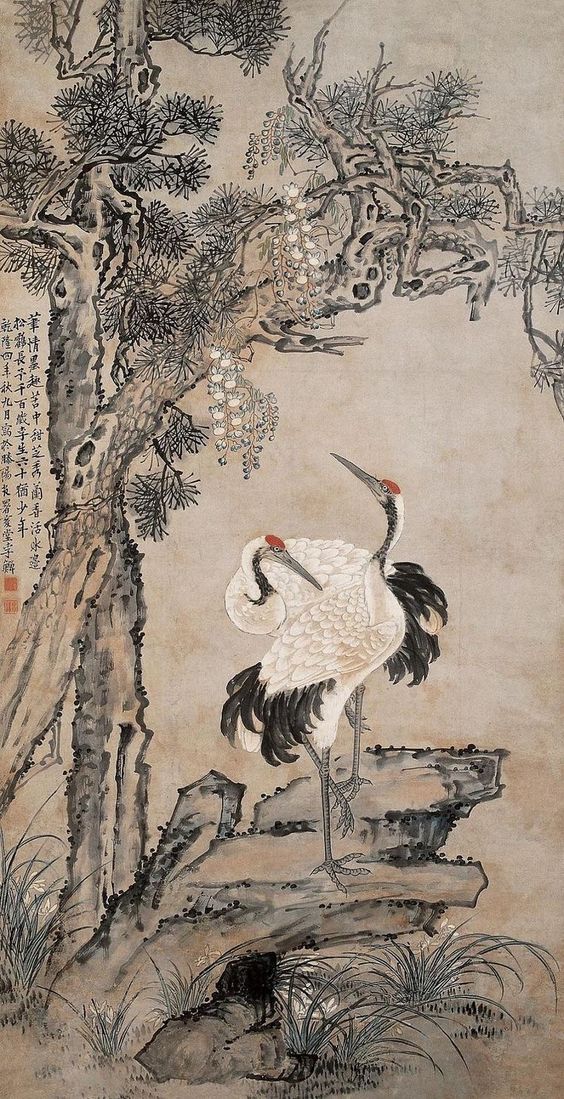 筆情墨趣苦中甜芝秀蘭香活水邊
松鶴長千百歲李生六十猶少年
乾隆四年秋九月寫於滕陽署復堂李鱓